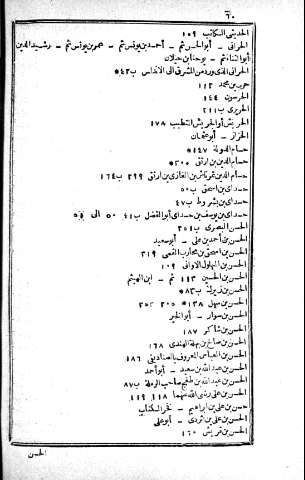 ٦٠
الحديثى الكاتب ١٥٩
الحرانى - أبو الحسن ثم - أحمد بن يونس ثم - عمر بن يونس ثم - رشيد الدين
أبو الثناء ثم - يوحنا بن حيلان
الحرانى الذى ورد من المشرق الى الاندلس ب٤٢*
حرير بن محمد ١١٣
الحرسون ١٤٤
الحريرى ب٢١١
الحريش أو الحريش المتطبب ١٧٨
الخزاز - أبو عثمان
حسام الدولة ١٤٧*
حسام الدين بن ارتق ٣٠٠*
حسام الدين تمرتاش بن الغازى بن ارتق ٢٩٩ ب١٦٤
حسداى بن اسحق ب٥٠
حسداى بن بشروط ب٤٧
حسداى بن يوسف بن حسداى أبو الفضل ب٤١ ٥٠ الى ٥١
الحسن البصرى ب٢٥١
الحسن بن أحمد بن على - أبو سعيد
الحسن بن اسحق بن محارب القمى ٣١٩
الحسن بن البهلول الاوانى ١٠٩
الحسن بن الحسين ١١٣ ثم - ابن الهيثم
الحسن بن زيرك ب٨٣*
الحسن بن سهل ١٣٨* ٢٠٥ ٢٥٢
الحسن بن سوار - أبو الخير
الحسن بن شاكر ١٨٧
الحسن بن صالح بن بهلة الهندى ١٦٨
الحسن بن العباس المعروف بالصناديقى ١٨٦
الحسن بن عبد الله بن سعيد - أبو أحمد
الحسن بن عبد الله بن طغج صاحب الرملة ب٨٧
الحسن بن على رضى الله عنهما ١١٨ ١١٩
حسن بن على بن ابراهيم - فخر الكتاب
الحسن بن على بن اثردى - أبو على
الحسن بن قريش ١٦٠
الحسن